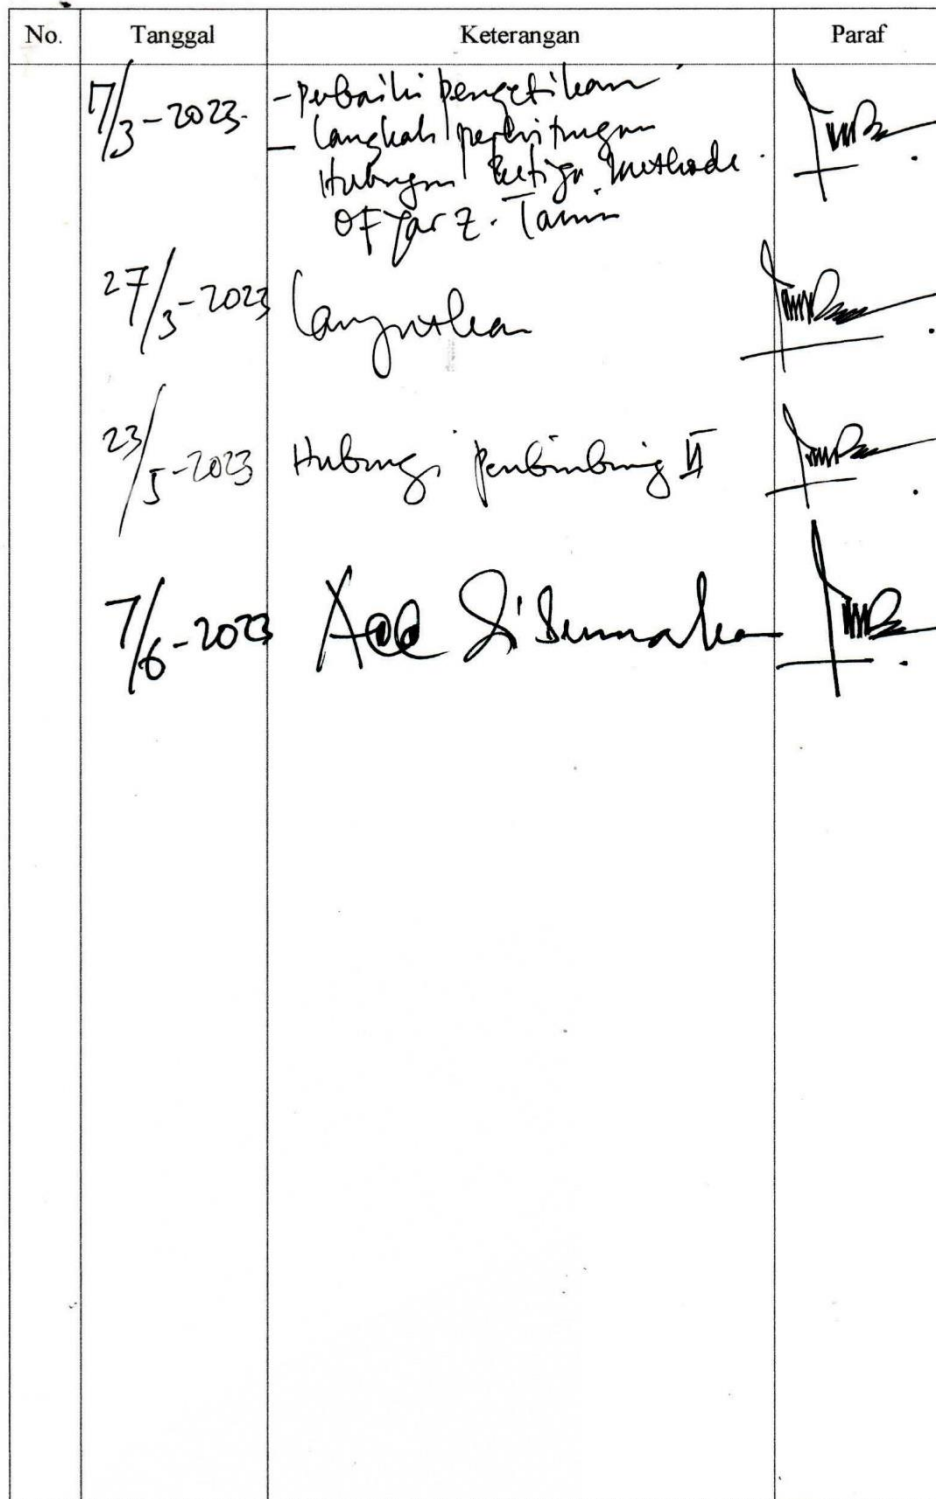 No. Tanggal Keterangan Paraf
7/3-2023. - perbaiki pengetikan
- langkah perhitungan
Hubungan ketiga methode.
OFyar Z. Tamin
27/3-2023 Lanjutkan
23/5-2023 Hubungi pembimbing II
7/6-2023 Acc Di